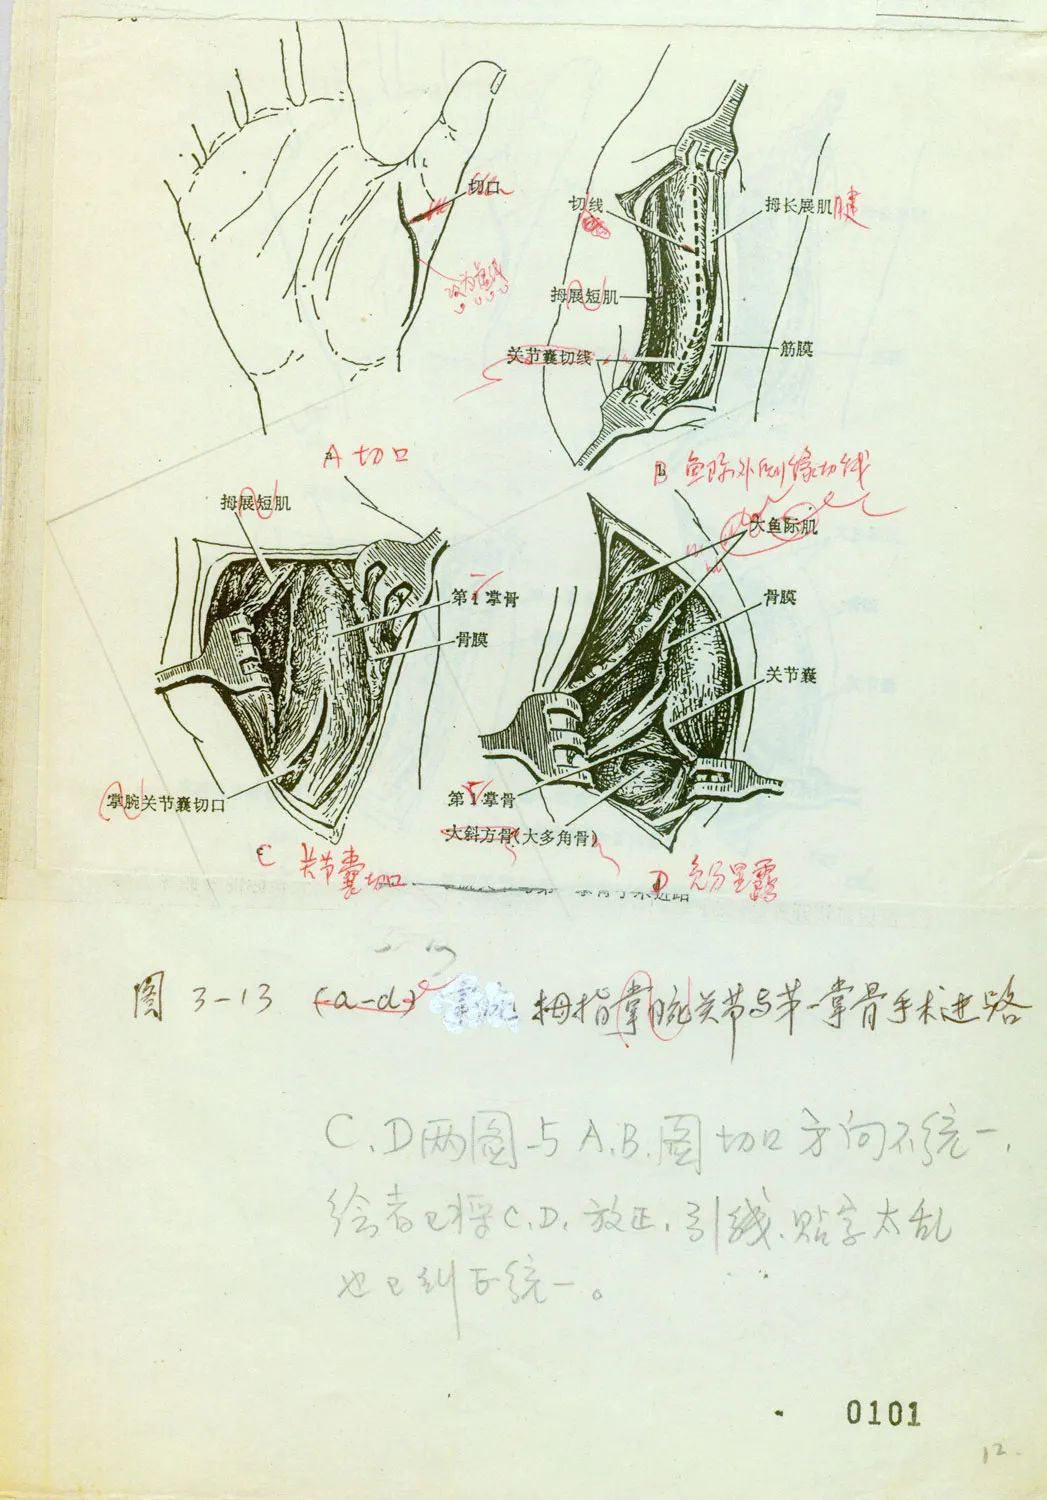 切口
改为直线
A 切口
切线
拇长展肌腱
拇展短肌
关节囊切线
筋膜
B 鱼际外侧缘切线
拇展短肌
第1掌骨
骨膜
掌腕关节囊切口
C 关节囊切口
大鱼际肌
骨膜
关节囊
第1掌骨
大斜方骨(大多角骨)
D 充分显露
图 3-13 (a-d) 掌腕 拇指掌腕关节与第一掌骨手术进路
C、D两图与A、B、图切口方向不统一，
绘者已将C、D、放正，引线、贴字太乱
也已纠正统一。
0101
12